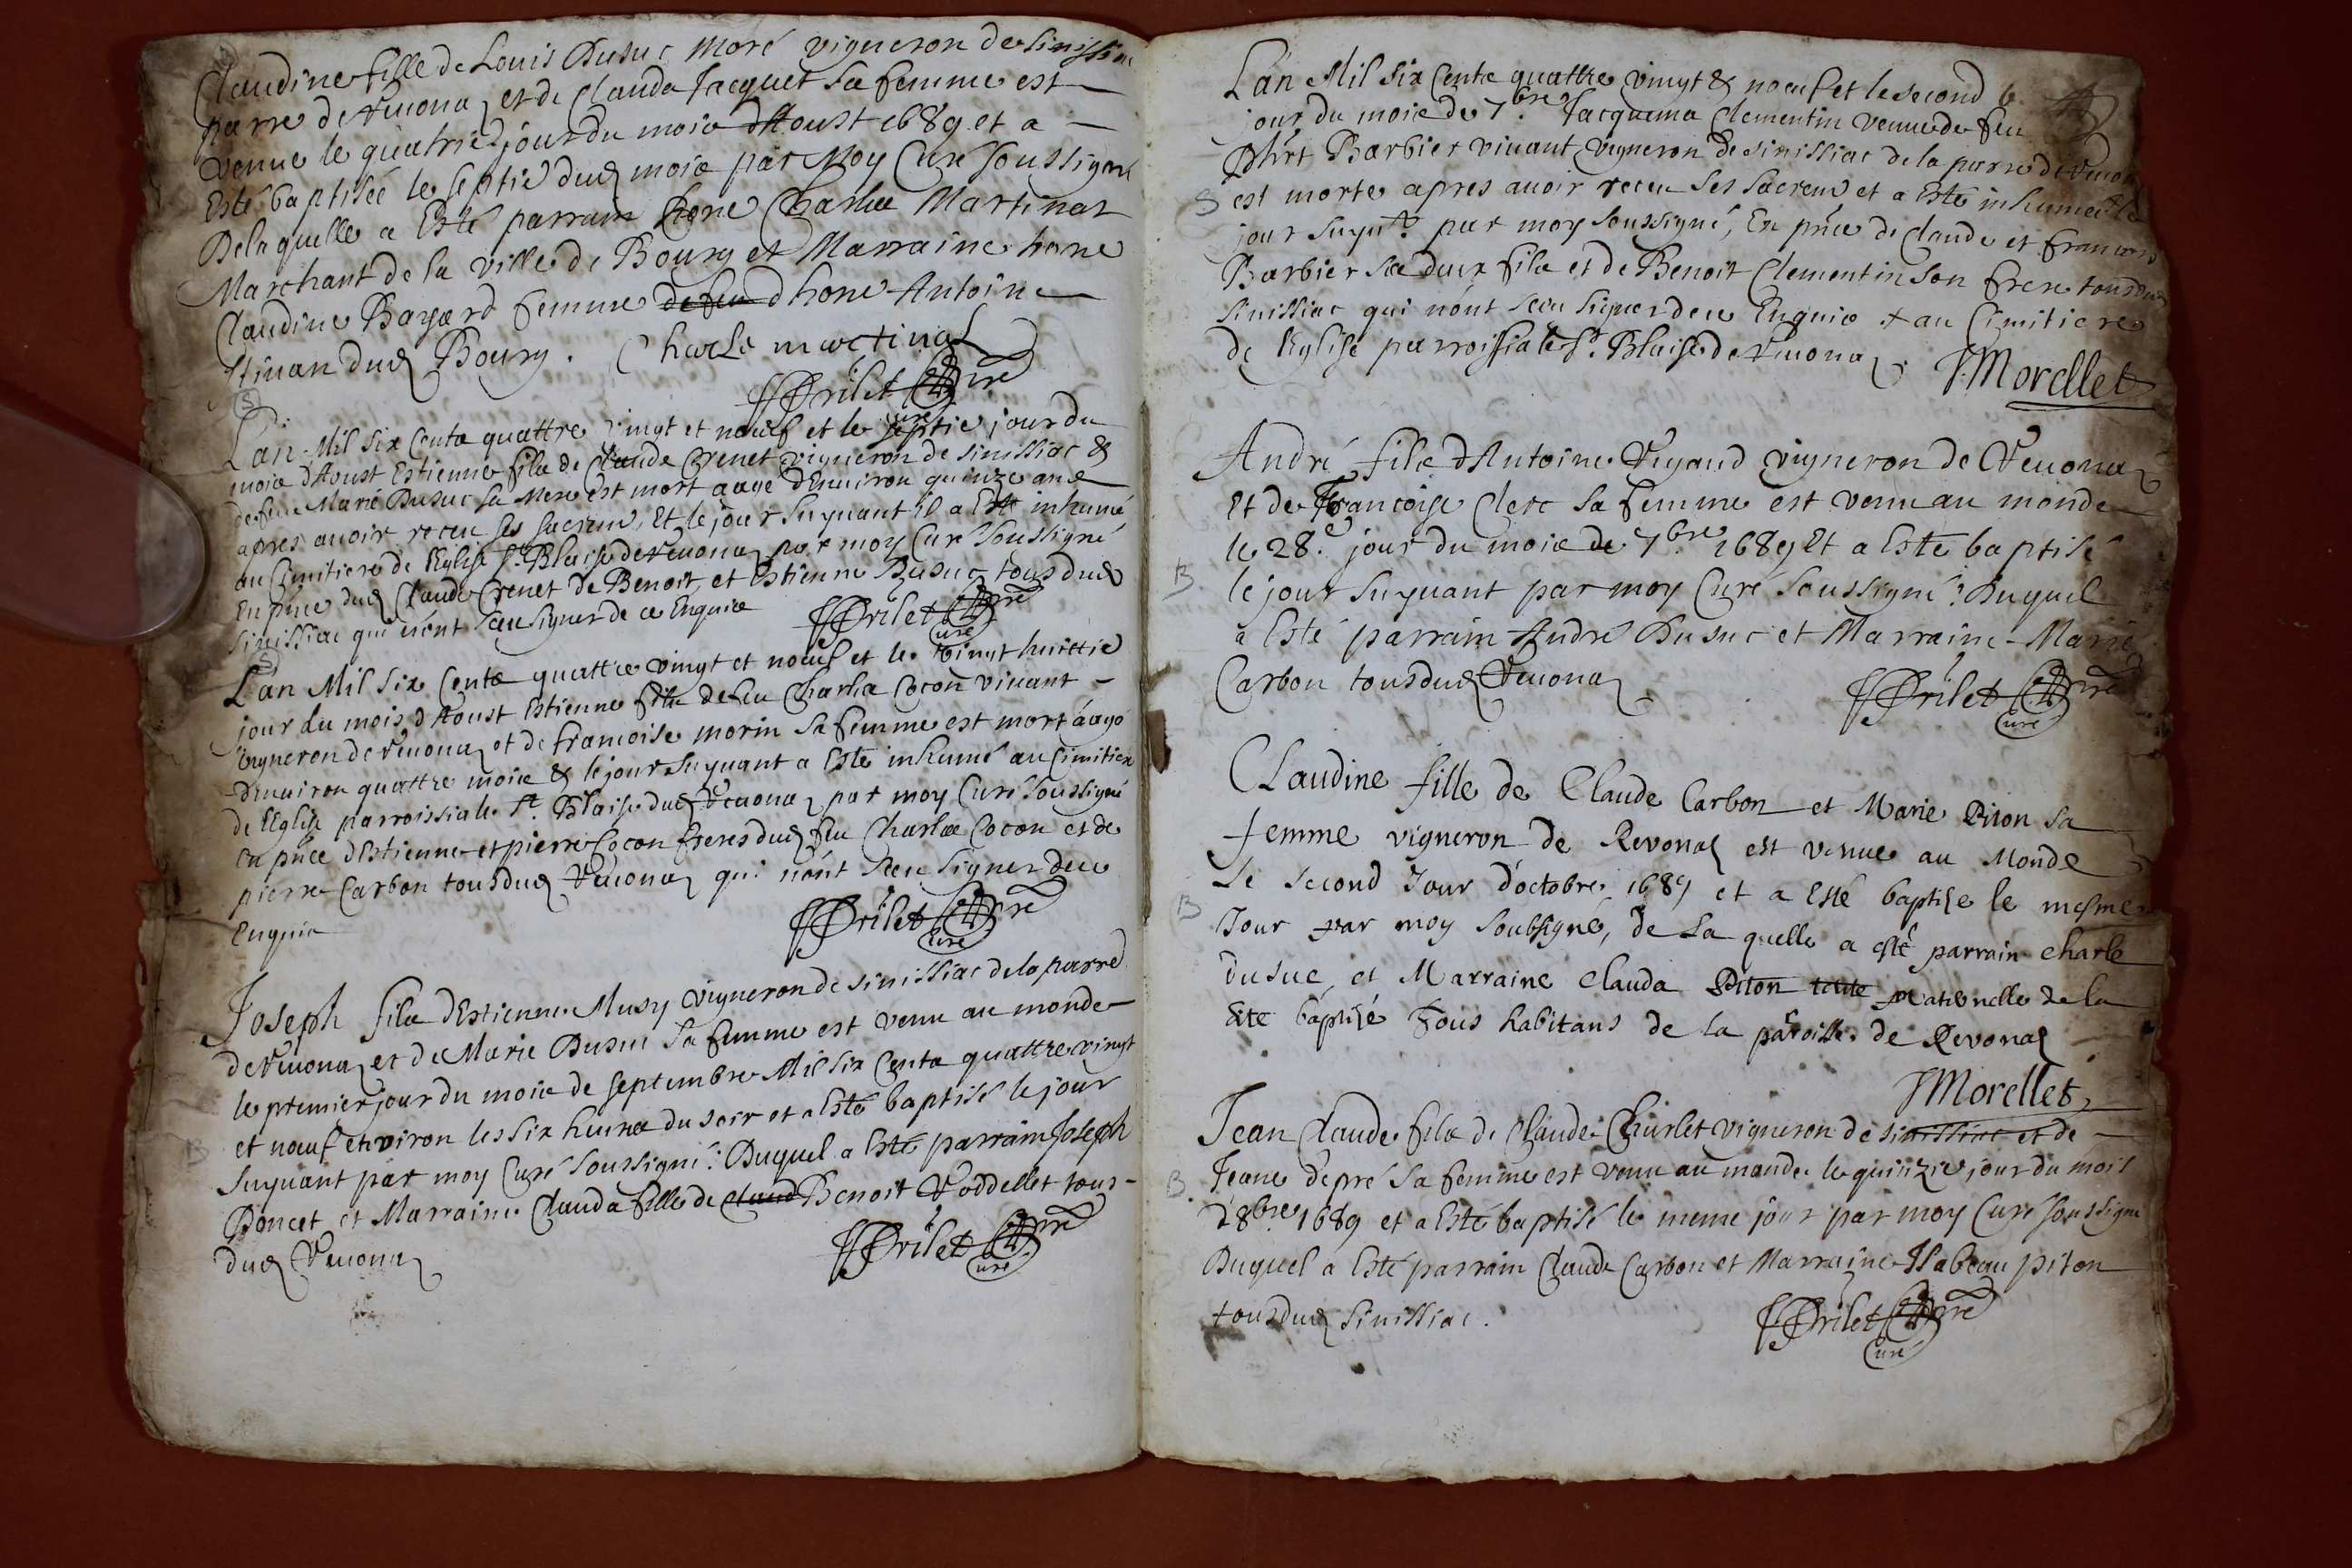 Claudine fille de Louis Dusuc Moré vigneron de Sinissiac
parre de Reuonaz et de Clauda Jacquet sa femme est
venue le quatrie jour du mois d'Aoust 1689 et a
Esté baptisée le septie dud mois par Moy Curé soussigné
De laquelle a Esté parrain hone Charles Martinat
Marchant de la ville de Bourg et Marraine hone
Claudine Bayard femme de feu d hone Antoine
dud Bourg. Charle martinat
F Prilet ptre Curé
S
L'an Mil six Cents quattre vingt et noeuf et le septie jour du
mois d'Aoust Estienne fils de Claude Crenet vigneron de Sinissiac &
de feue Marie Dusuc sa Mere est mort aagé d'Enuiron quinze ans
apres auoir receu ses sacremt, Et le jour suyuant il a Esté inhumé
au Cimitiere de l'Eglise St Blaise de Reuonaz par moy Curé soussigné
En pñce dud Claude Crenet de Benoit et Estienne Dusuc tous dud
Sinissiac qui n'ont sceu signer de ce Enquis
F Prilet ptre Curé
S
L'an Mil six Cents quattre vingt et noeuf et le vingt huittie
jour du mois d'Aoust Estienne fils de feu Charles Cocon viuant
vigneron de Reuonaz et de francoise morin sa femme est mort aagé
d'enuiron quattre mois & le jour suyuant a Esté inhumé au Cimitiere
de l'Eglise parroissiale St Blaise dud Reuonaz par moy Curé soussigné
en pñce d'Estienne et pierre Cocon freres dud feu Charles Cocon et de
pierre Carbon tous dud Reuonaz qui n'ont sceu signer de ce
Enquis
F Prilet ptre Curé
Joseph fils d'Estienne Musy vigneron de Sinissiac de la parre
de Reuonaz et de Marie Dusuc sa femme est venu au monde
le premier jour du mois de septembre Mil six Cents quattre vingt
et noeuf environ les six heures du soir et a Esté baptisé le jour
suyuant par moy Curé soussigné: Duquel a Esté parrain Joseph
Poncet et Marraine Clauda fille de Claud Benoit Voddellet tous
dud Reuonaz
B
F Prilet ptre Curé
L'an Mil six Cents quattre vingt & noeuf et le second
jour du mois de 7bre Jacquema Clementin veuue de feu
Phirt Barbier viuant vigneron de sinissiac de la parre de Reuonaz
S
est morte apres auoir receu ses sacremt et a Esté inhumée le
jour suyut par moy soussigné, En pñce de Claude et francois
Barbier ses deux fils et de Benoit Clementin son frere tous dud
Sinissiac qui n'ont sceu signer de ce Enquis + au Cimitiere
de l'Eglise parroissiale St Blaise de Reuonaz. Morellet
André fils d'Antoine Vigaud vigneron de Reuonaz
Et de francoise Clerc sa femme est venu au monde
le 28e jour du mois de 7bre 1689 Et a Esté baptisé
B
le jour suyuant par moy Curé soussigné: Duquel
a Esté parrain André Dusuc et Marraine Marie
Carbon tous dud Reuonaz
F Prilet ptre Curé
Claudine fille de Claude Carbon et Marie Piton sa
femme vigneron de Revonaz est venue au Monde
le second Jour d'octobre 1689 et a Esté baptise le mesme
B
Jour par moy soubsigné, de La quelle a esté parrain Charle
dusuc, et Marraine Clauda Piton tante maternelle de la
dite baptisé Tous habitans de la paroisse de Revonaz
Morellet
Jean Claude fils de Claude Churlet vigneron de sinissiac et de
B
Jeane depré sa femme est venu au monde le quinzie jour du mois
d'8bre 1689 et a Esté baptisé le meme jour par moy Curé soussigné
Duquel a Esté parrain Claude Carbon et Marraine Ysabeau piton
tous dud Sinissiac.
F Prilet ptre Curé